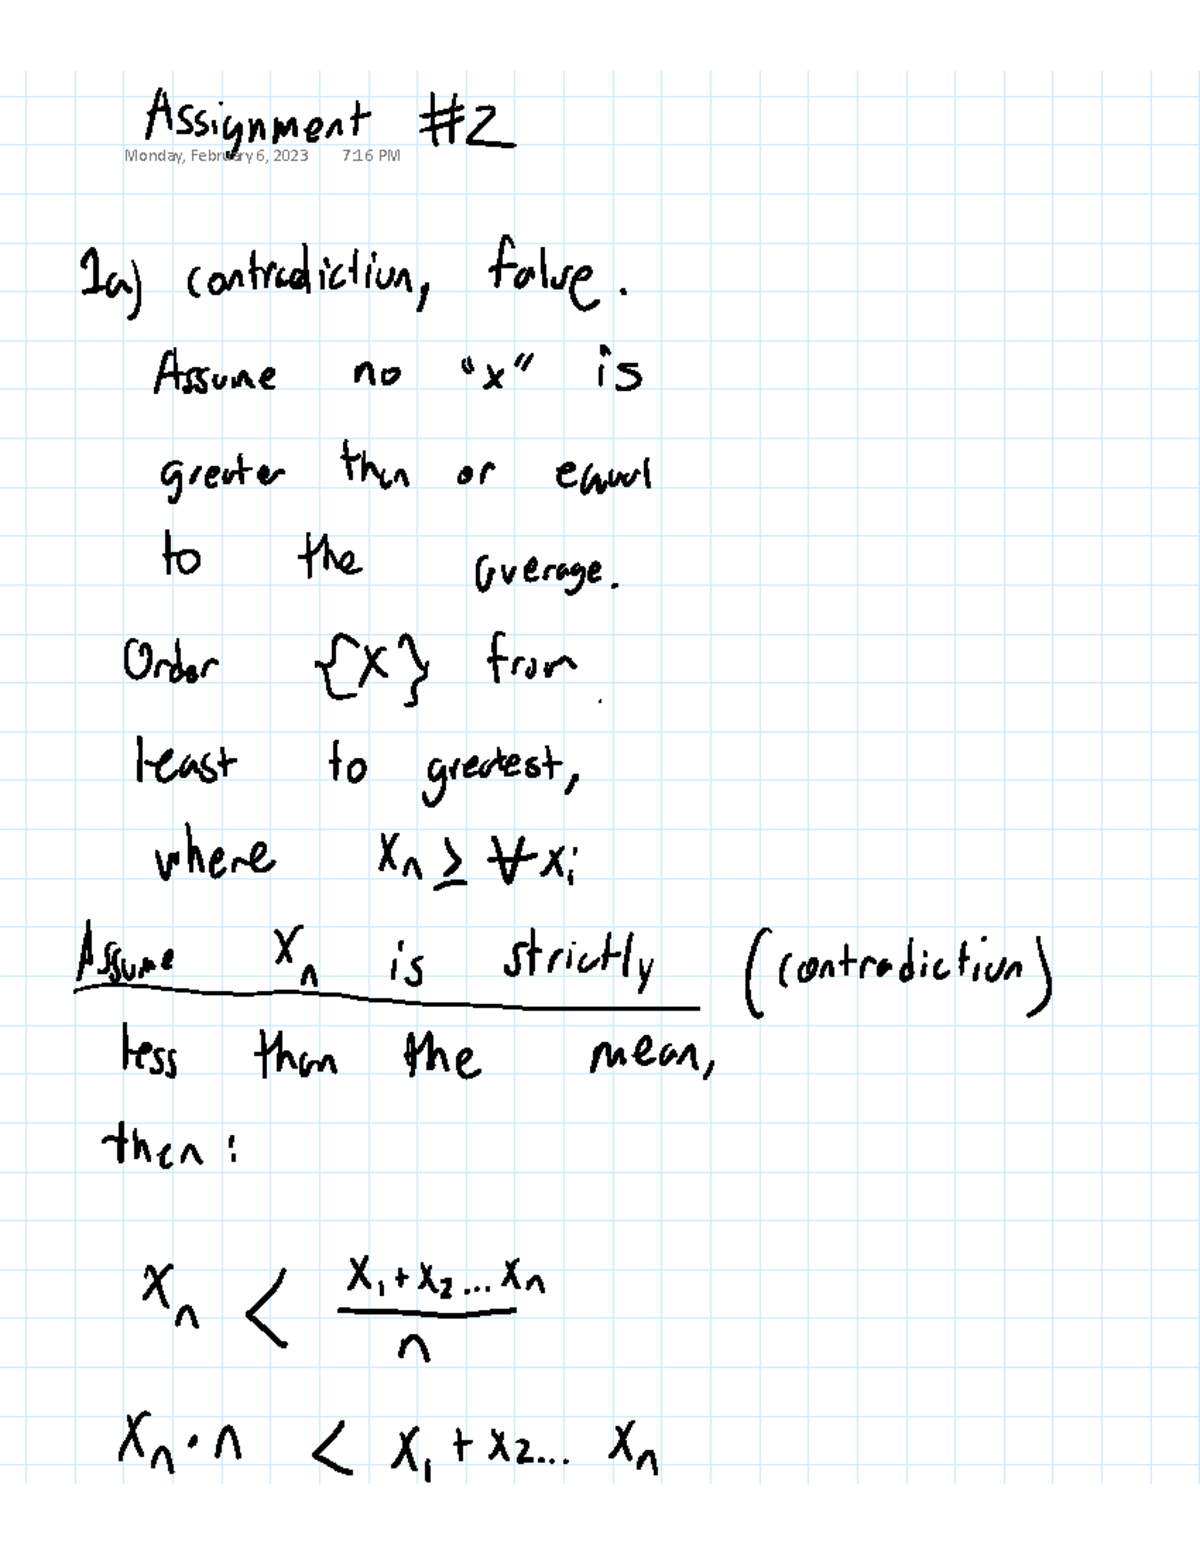 Assignment #2
Monday, February 6, 2023 7:16 PM
1a) contradiction, false.
Assume no "x" is
greater than or equal
to the average.
Order {x} from
least to greatest,
where xₙ ≥ ∀ xᵢ
Assume xₙ is strictly (contradiction)
less than the mean,
then:
xₙ < x₁ + x₂ ... xₙ / n
xₙ · n < x₁ + x₂ ... xₙ